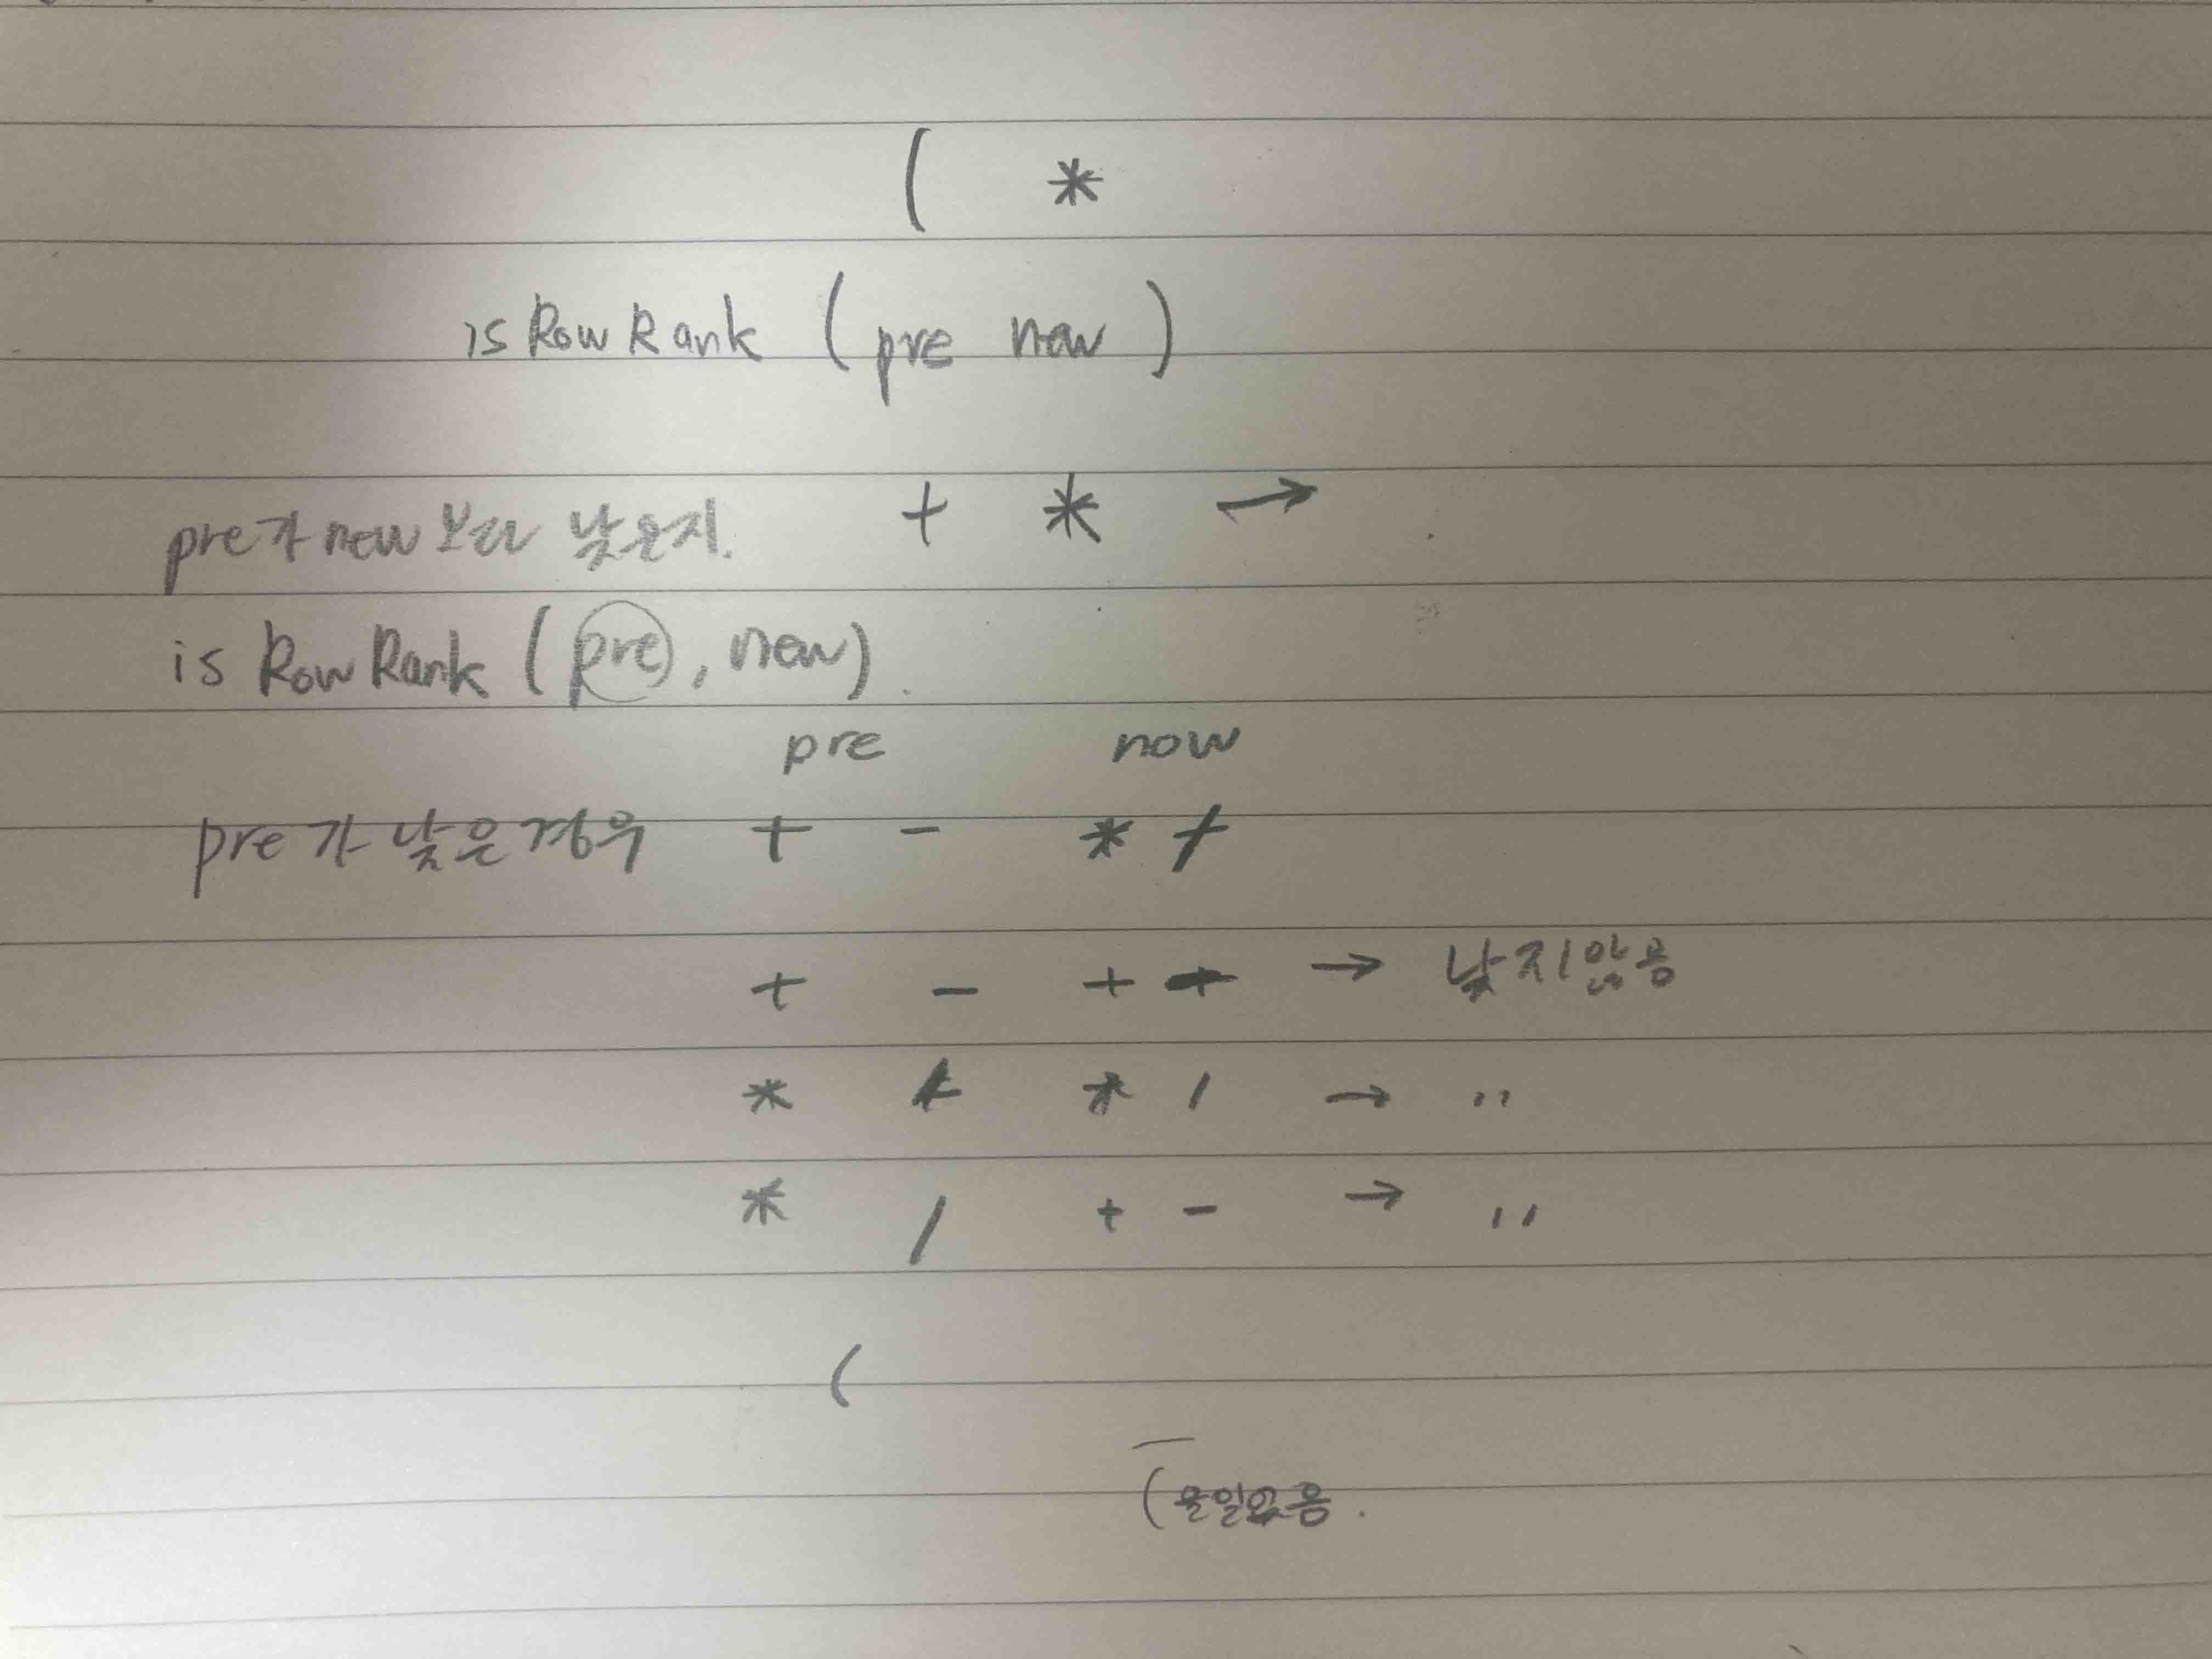 ( *
is Row Rank ( pre new )
pre가 new 보다 낮은지. + * →
is Row Rank ( pre , new ) .
pre now
pre가 낮은경우 + - * /
+ - + - → 낮지않음
* / * / → 〃
* / + - → 〃
(
( 올일없음 .